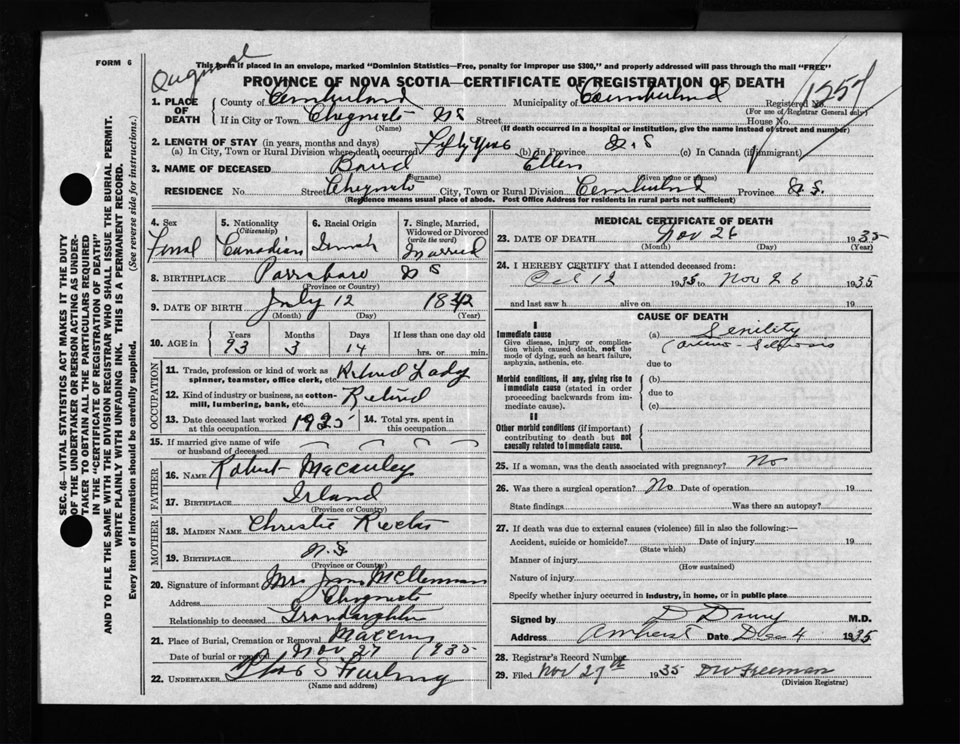 FORM 6
Original
This form if placed in an envelope, marked "Dominion Statistics—Free, penalty for improper use $300," and properly addressed will pass through the mail "FREE"
PROVINCE OF NOVA SCOTIA—CERTIFICATE OF REGISTRATION OF DEATH
1257
1. PLACE OF DEATH County of Cumberland Municipality of Cumberland Registered No.
(For use of Registrar General only)
If in City or Town Chignecto N S Street House No.
(Name) (If death occurred in a hospital or institution, give the name instead of street and number)
2. LENGTH OF STAY (in years, months and days)
(a) In City, Town or Rural Division where death occurred Fifty Years (b) In Province N.S (c) In Canada (if immigrant)
3. NAME OF DECEASED Baird Ellen
(Surname) (Given name or names)
RESIDENCE No. Street Chignecto City, Town or Rural Division Cumberland Province N.S.
(Residence means usual place of abode. Post Office Address for residents in rural parts not sufficient)
4. Sex 5. Nationality (Citizenship) 6. Racial Origin 7. Single, Married, Widowed or Divorced (write the word)
Canadian Married
8. BIRTHPLACE Parrsboro N S
(Province or Country)
9. DATE OF BIRTH July 12 1842
(Month) (Day) (Year)
10. AGE in Years Months Days If less than one day old
93 3 14 hrs. or min.
OCCUPATION
11. Trade, profession or kind of work as spinner, teamster, office clerk, etc. Retired Lady
12. Kind of industry or business, as cotton-mill, lumbering, bank, etc. Retired
13. Date deceased last worked at this occupation 1925 14. Total yrs. spent in this occupation
15. If married give name of wife or husband of deceased
FATHER
16. NAME Robert Macauley
17. BIRTHPLACE Irland
(Province or Country)
MOTHER
18. MAIDEN NAME Christie
19. BIRTHPLACE N.S.
(Province or Country)
20. Signature of informant Mrs
Address Chignecto
Relationship to deceased Grandaughter
21. Place of Burial, Cremation or Removal Maccan
Date of burial or removal Nov 27 1935
22. UNDERTAKER
(Name and address)
MEDICAL CERTIFICATE OF DEATH
23. DATE OF DEATH Nov 26 1935
(Month) (Day) (Year)
24. I HEREBY CERTIFY that I attended deceased from:
Oct 12 1935 to Nov 26 1935
and last saw h alive on 19
CAUSE OF DEATH
I
Immediate cause (a) Senility
Give disease, injury, or complication which caused death, not the mode of dying, such as heart failure, asphyxia, asthenia, etc.
due to
Morbid conditions, if any, giving rise to immediate cause (stated in order proceeding backwards from immediate cause). (b)
due to
(c)
II
Other morbid conditions (if important) contributing to death but not causally related to immediate cause.
25. If a woman, was the death associated with pregnancy? No
26. Was there a surgical operation? No Date of operation 19
State findings Was there an autopsy?
27. If death was due to external causes (violence) fill in also the following:—
Accident, suicide or homicide? Date of injury 19
(State which)
Manner of injury
(How sustained)
Nature of injury
Specify whether injury occurred in industry, in home, or in public place
Signed by D Drury M.D.
Address Amherst Date Dec 4 1935
28. Registrar's Record Number
29. Filed Nov 27th 1935 DW Freeman
(Division Registrar)
SEC. 46—VITAL STATISTICS ACT MAKES IT THE DUTY
OF THE UNDERTAKER OR PERSON ACTING AS UNDERTAKER TO OBTAIN ALL THE PARTICULARS REQUIRED
IN THE "CERTIFICATE OF REGISTRATION OF DEATH"
AND TO FILE THE SAME WITH THE DIVISION REGISTRAR WHO SHALL ISSUE THE BURIAL PERMIT.
WRITE PLAINLY WITH UNFADING INK. THIS IS A PERMANENT RECORD.
Every item of information should be carefully supplied. (See reverse side for instructions.)